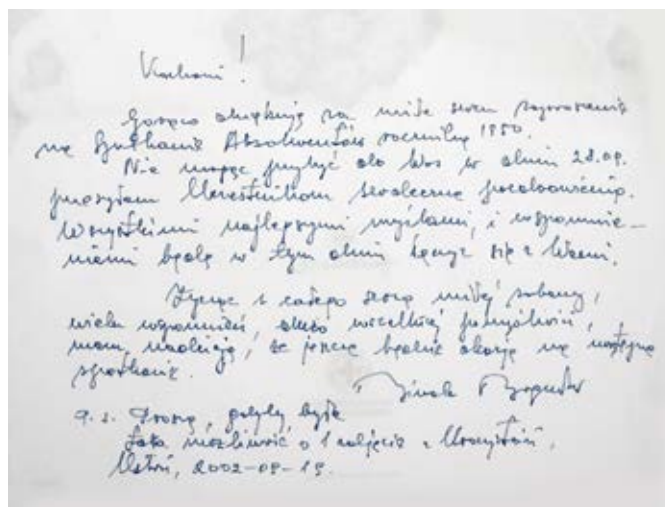 Kochani!
Gorąco dziękuję za miłe mem zaproszenie
na Spotkanie Absolwentów rocznika 1950.
Nie mogąc przybyć do Was w dniu 28.09.
przesyłam Uczestnikom serdeczne pozdrowienia.
Wszystkimi najlepszymi myślami, i wspomnie-
niami będę w tym dniu łączyć się z Wami.
Życząc z całego serca miłej zabawy,
wielu wspomnień, dużo wszelkiej pomyślności,
mam nadzieję, że jeszcze będzie okazja na następne
spotkanie.
P.S. Proszę, gdyby była
taka możliwość o 1 zdjęcie z Uroczystości.
Ustroń, 2002-09-19.